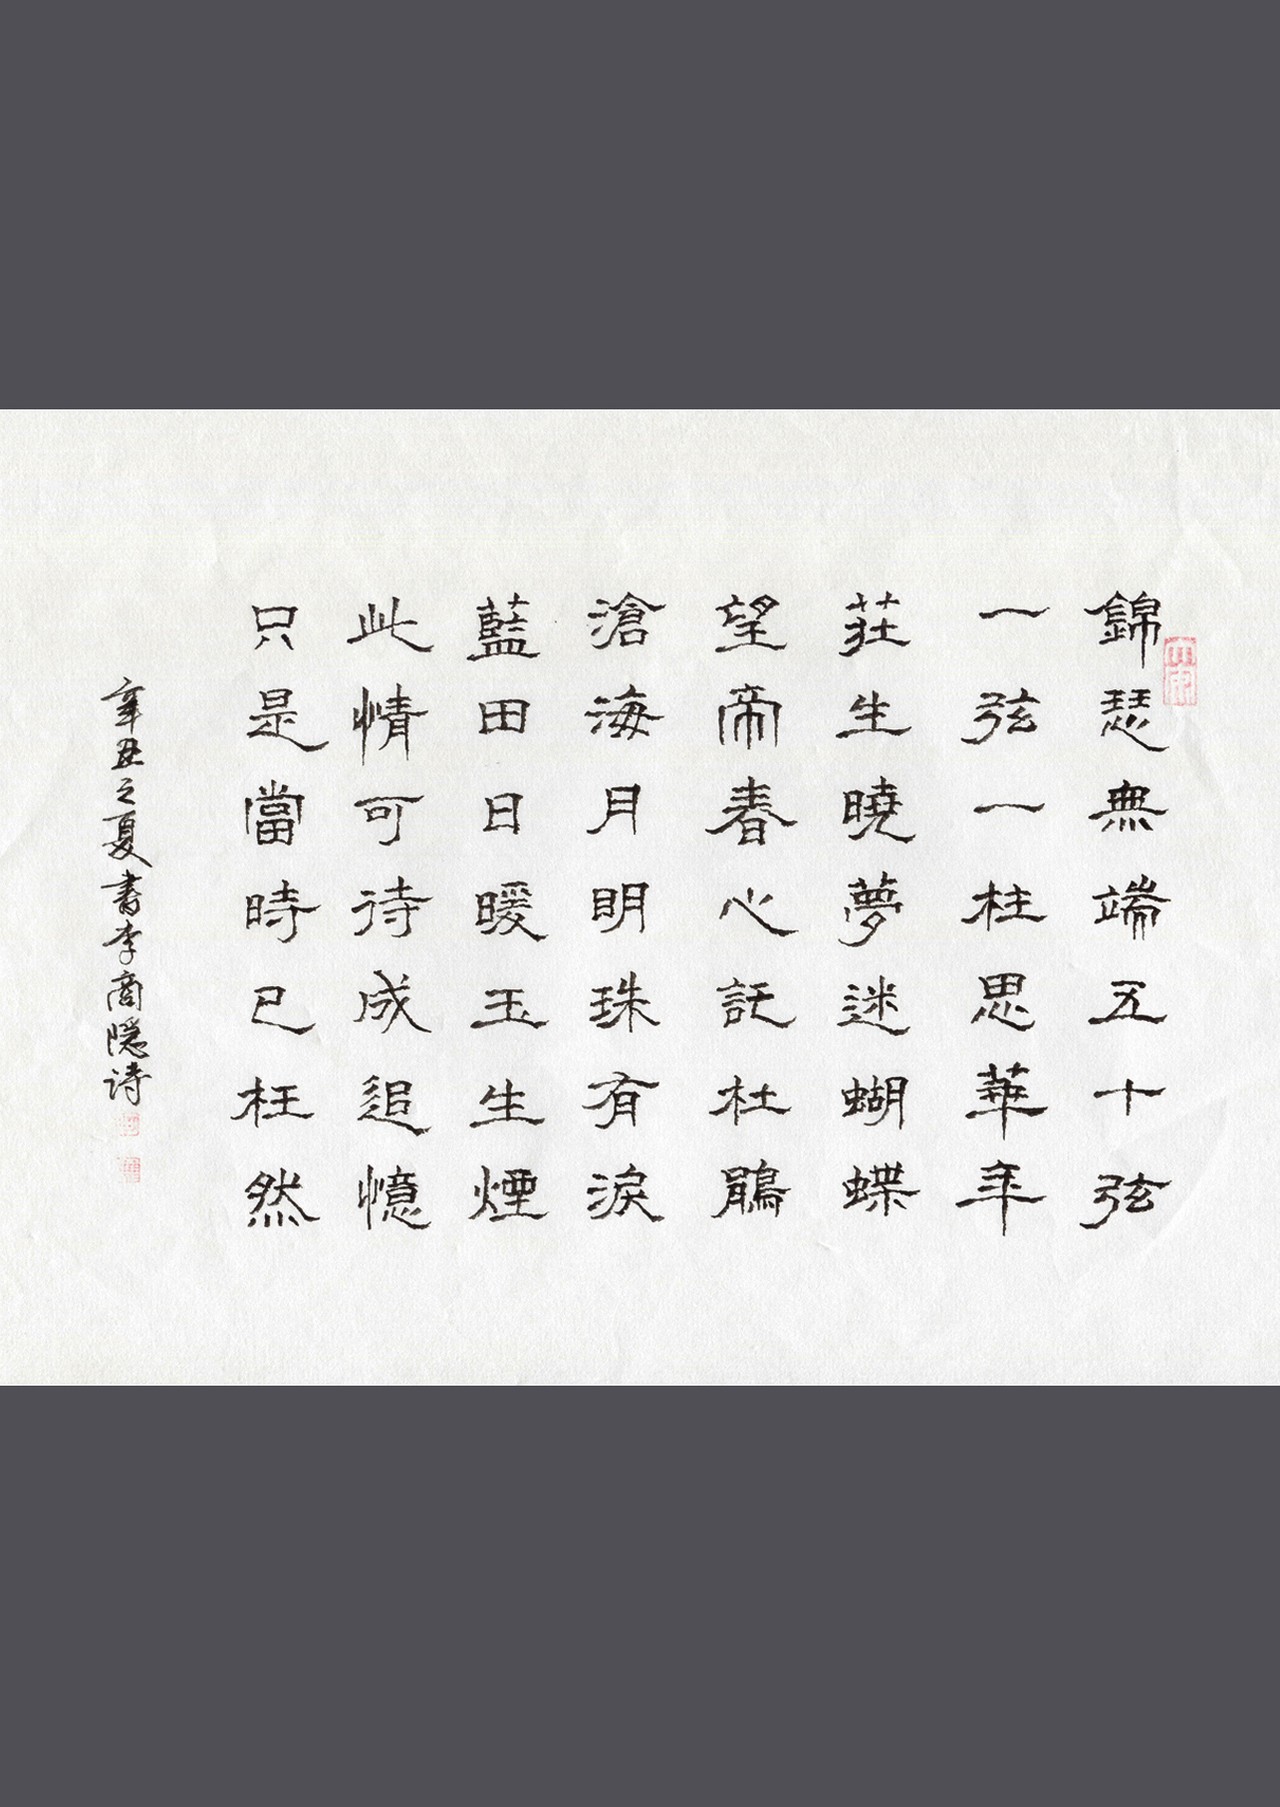 錦瑟無端五十弦
一弦一柱思華年
莊生曉夢迷蝴蝶
望帝春心託杜鵑
滄海月明珠有淚
藍田日暖玉生煙
此情可待成追憶
只是當時已枉然
辛丑之夏書李商隱诗